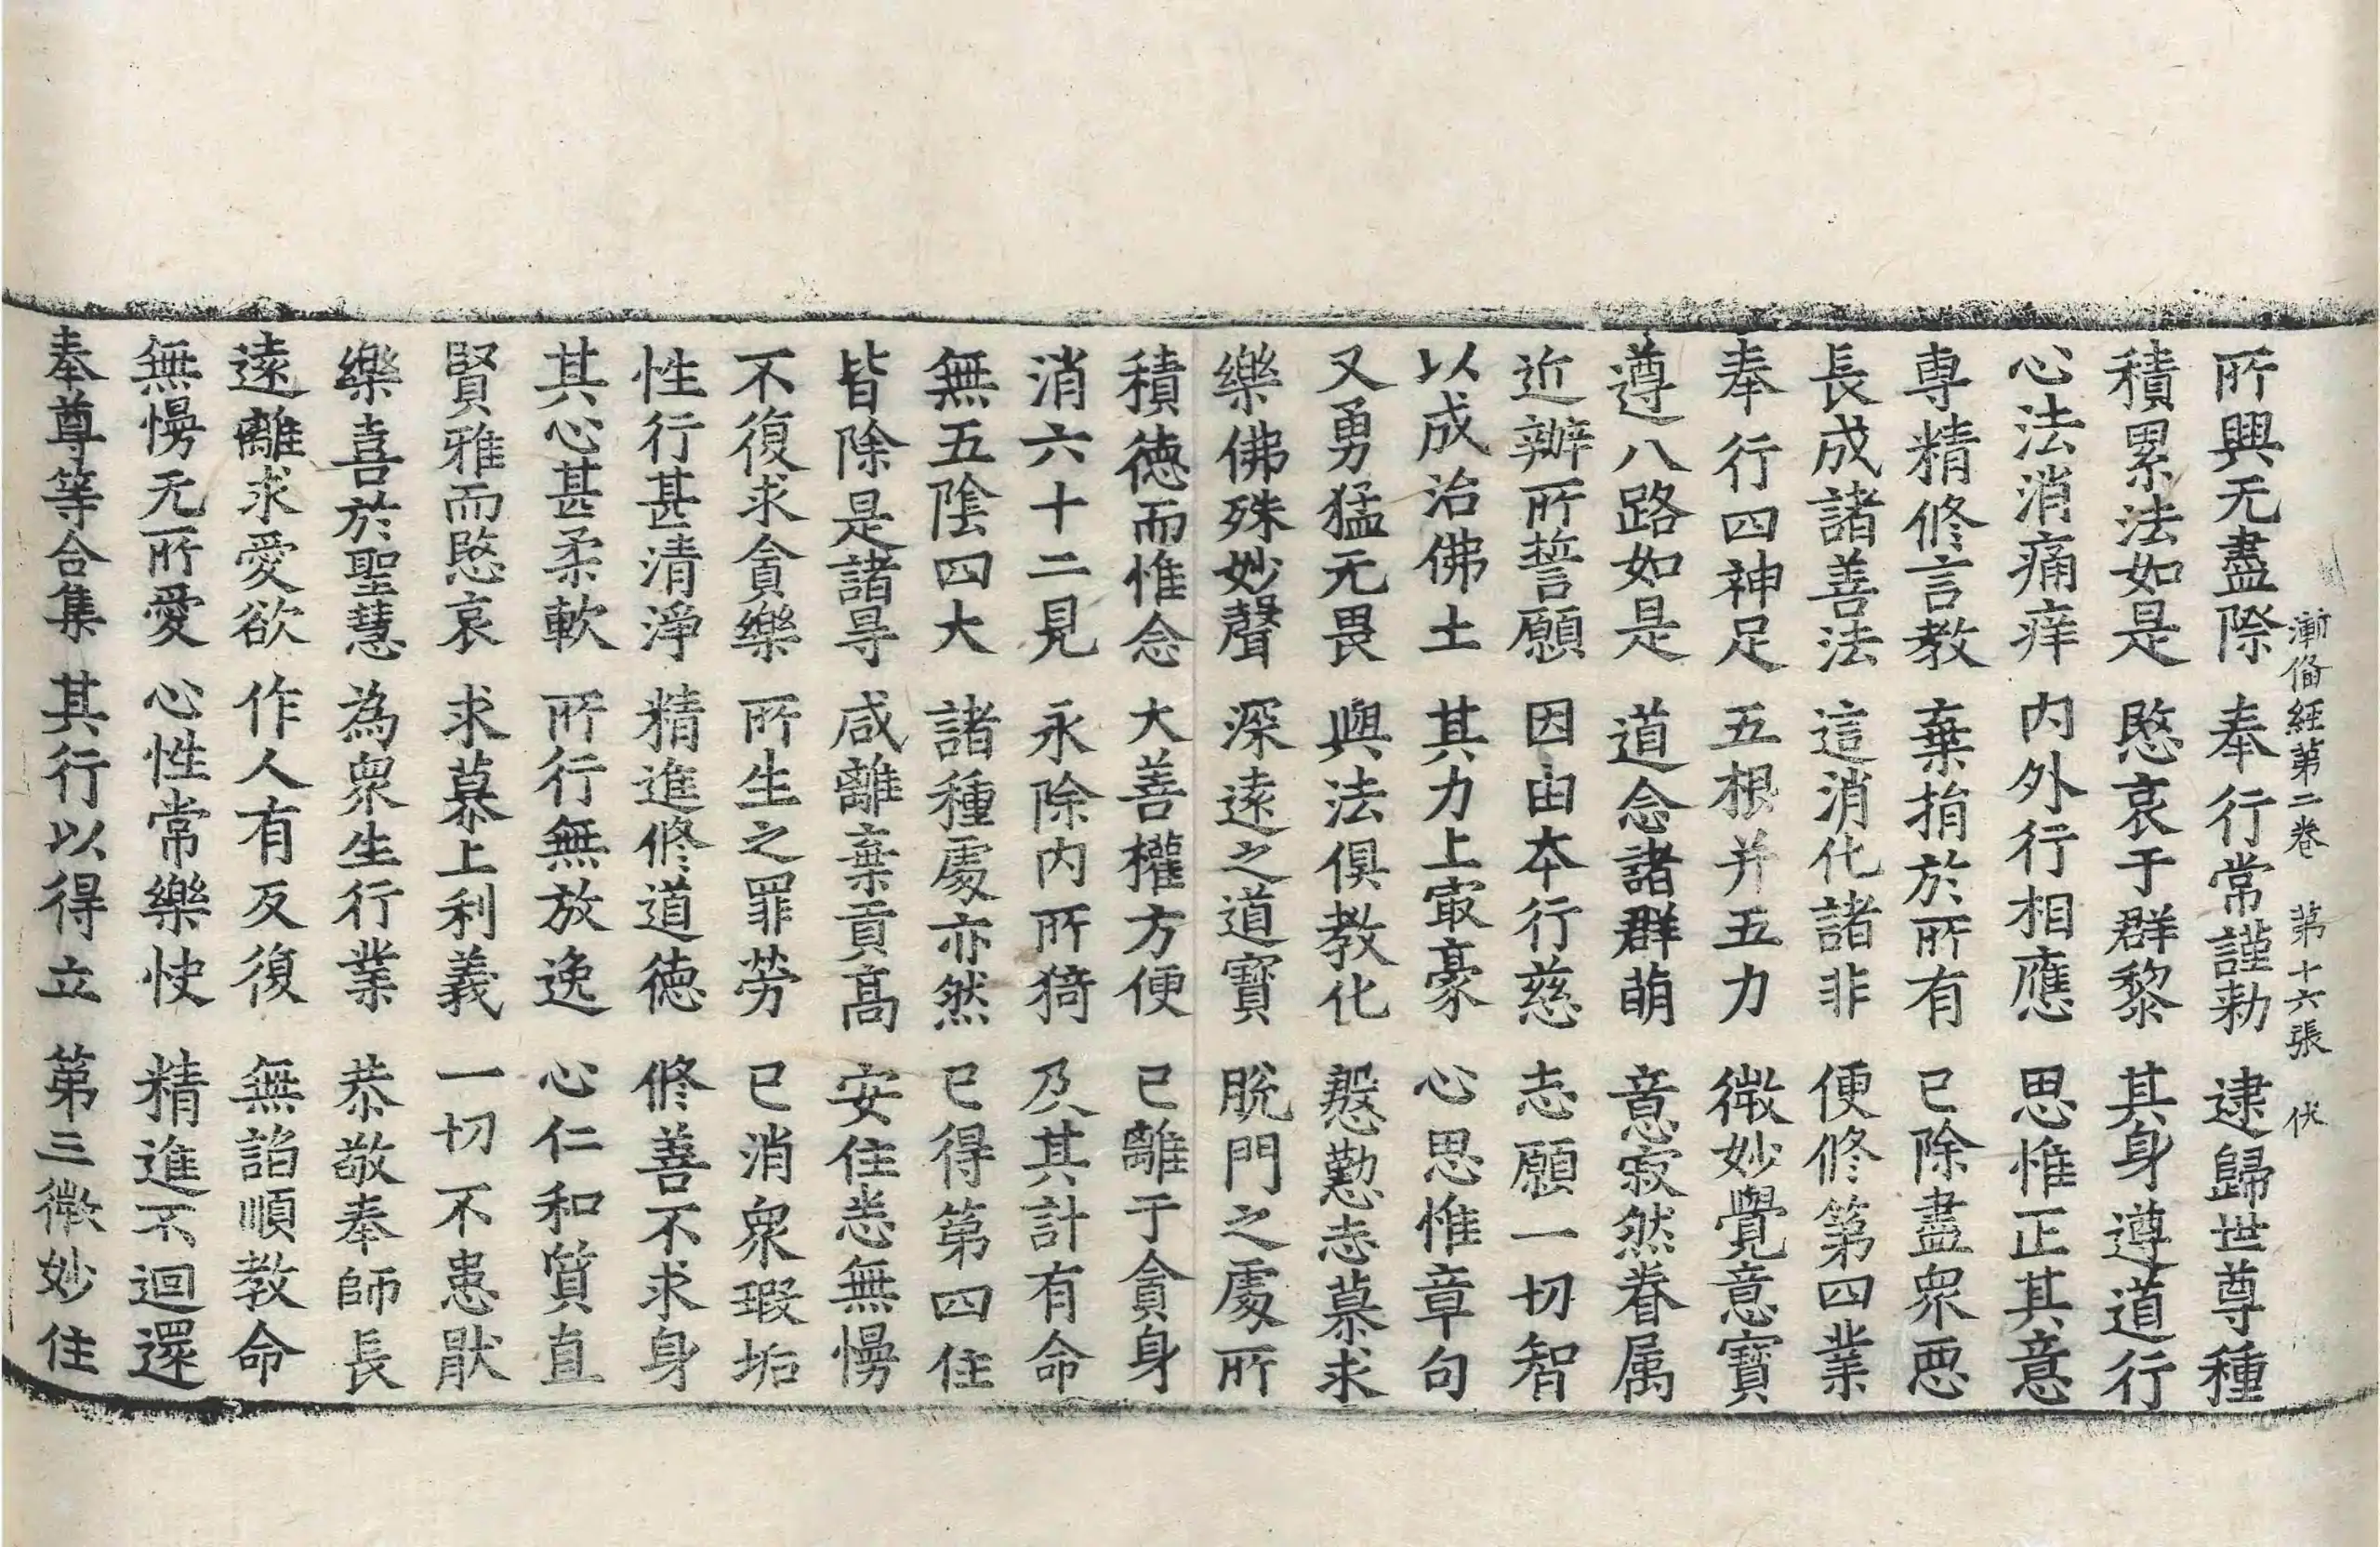 漸俻經第二卷 第十六張 伏
所興无盡際 奉行常謹勑 逮歸世尊種
積累法如是 愍哀于群黎 其身遵道行
心法消痛痒 内外行相應 思惟正其意
専精修言教 棄捐於所有 已除盡衆恶
長成諸善法 這消化諸非 便修第四業
奉行四神足 五根并五力 微妙覺意寶
遵八路如是 道念諸群萌 意寂然眷属
近辦所誓願 因由本行慈 志願一切智
以成治佛土 其力上㝡豪 心思惟章句
又勇猛无畏 與法俱教化 慇懃志慕求
樂佛殊妙聲 深遠之道寶 脫門之處所
積徳而惟念 大善權方便 已離于貪身
消六十二見 永除内所猗 及其計有命
無五陰四大 諸種處亦然 已得第四住
皆除是諸㝵 咸離棄貢髙 安住悉無慢
不復求貪樂 所生之罪勞 已消衆瑕垢
性行甚清淨 精進修道徳 修善不求身
其心甚柔軟 所行無放逸 心仁和質直
賢雅而愍哀 求慕上利義 一切不患猒
樂喜於聖慧 為衆生行業 恭敬奉師長
遠離求愛欲 作人有反復 無諂順教命
無慢无所愛 心性常樂快 精進不迴還
奉尊等合集 其行以得立 第三微妙住